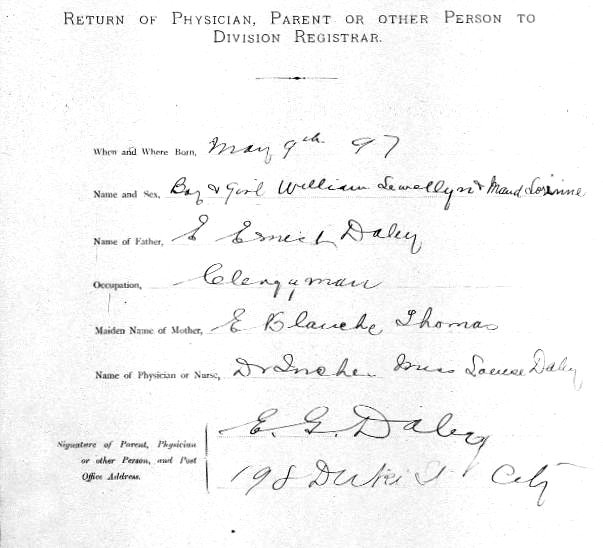 RETURN OF PHYSICIAN, PARENT OR OTHER PERSON TO
DIVISION REGISTRAR.
When and Where Born, May 9th 97
Name and Sex, Boy & Girl William Lewellyn & Maud Lorinne
Name of Father, E Ernest Daley
Occupation, Clergyman
Maiden Name of Mother, E Blanche Thomas
Name of Physician or Nurse, Dr Miss Louise Daley
Signature of Parent, Physician
or other Person, and Post
Office Address.
E. G. Daley
198 Duke St City